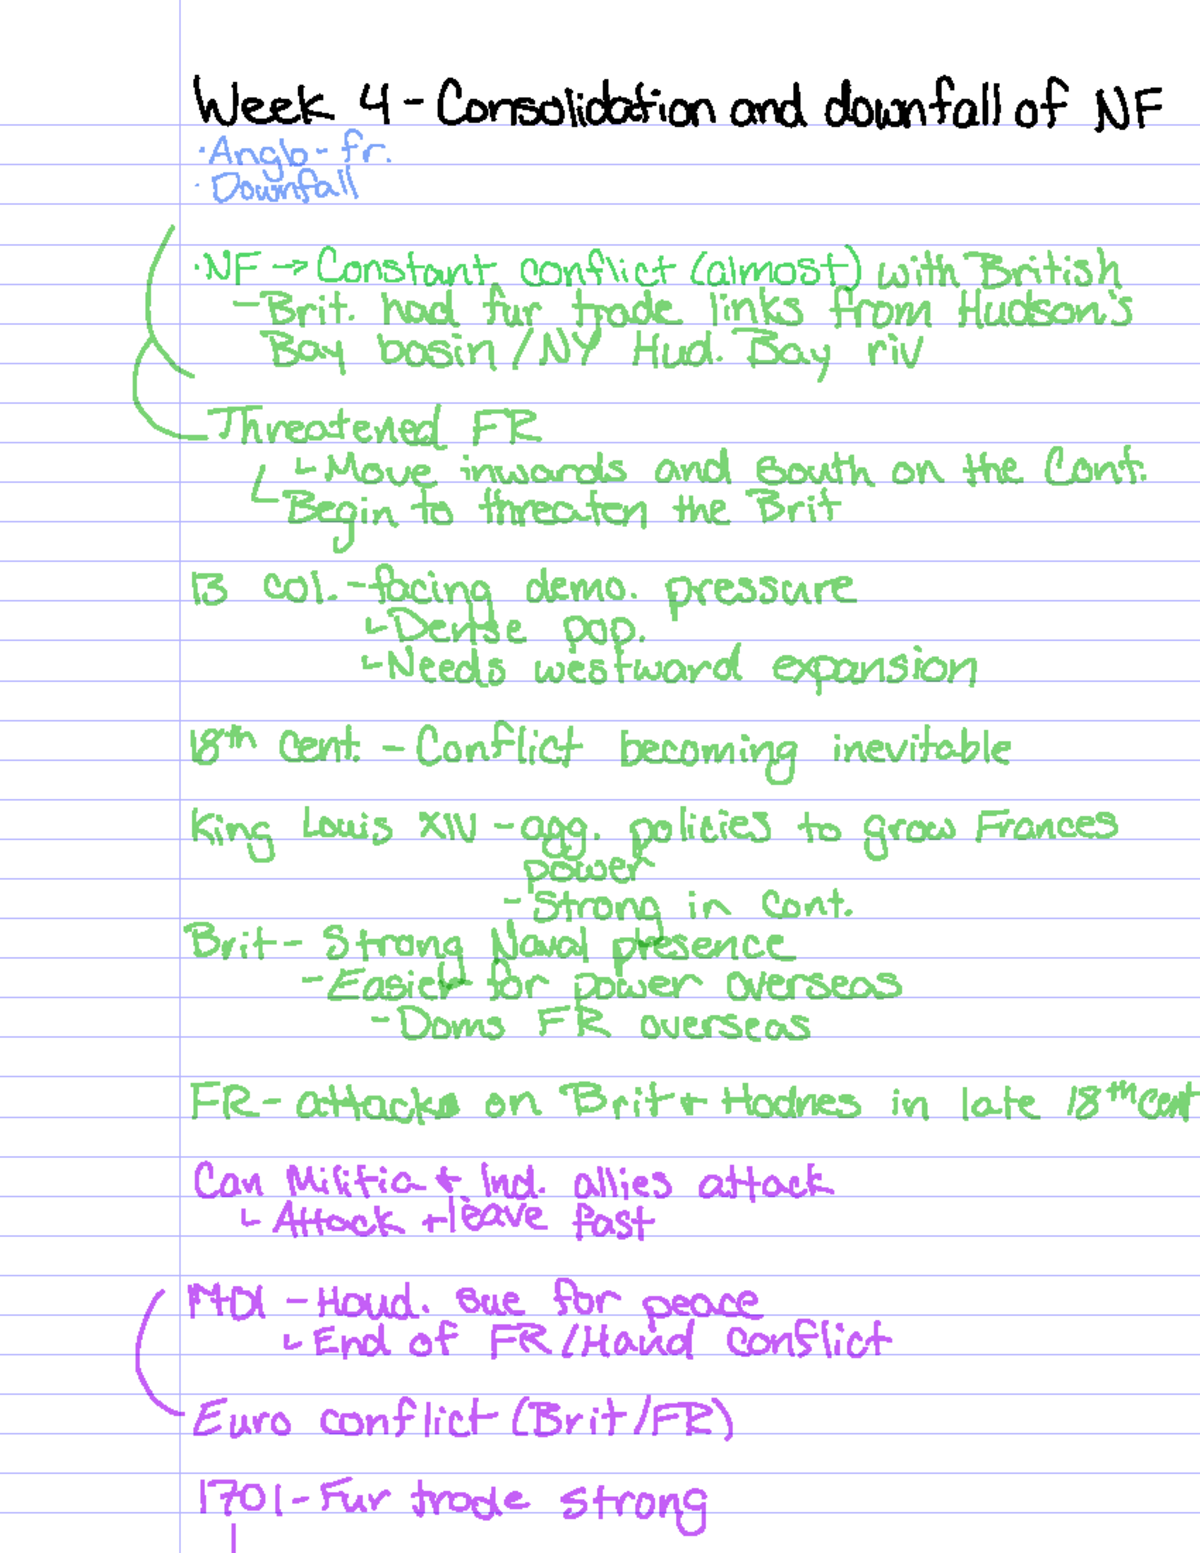 Week 4 - Consolidation and downfall of NF
· Anglo - fr.
· Downfall
· NF → Constant conflict (almost) with British
- Brit. had fur trade links from Hudson's
Bay basin / NY Hud. Bay riv
Threatened FR
↳ Move inwards and south on the Cont.
↳ Begin to threaten the Brit
13 Col. - facing demo. pressure
↳ Dense pop.
↳ Needs westward expansion
18th Cent. - Conflict becoming inevitable
King Louis XIV - agg. policies to grow Frances
power
- Strong in Cont.
Brit - Strong Naval presence
- Easier for power overseas
- Doms FR overseas
FR - attacks on Brit + Hodnes in late 18th cent
Can Militia + Ind. allies attack
↳ Attack + leave fast
1701 - Houd. sue for peace
↳ End of FR / Haud conflict
Euro conflict (Brit / FR)
1701 - Fur trade strong